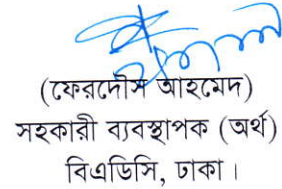 (ফেরদৌস আহমেদ)
সহকারী ব্যবস্থাপক (অর্থ)
বিএডিসি, ঢাকা।